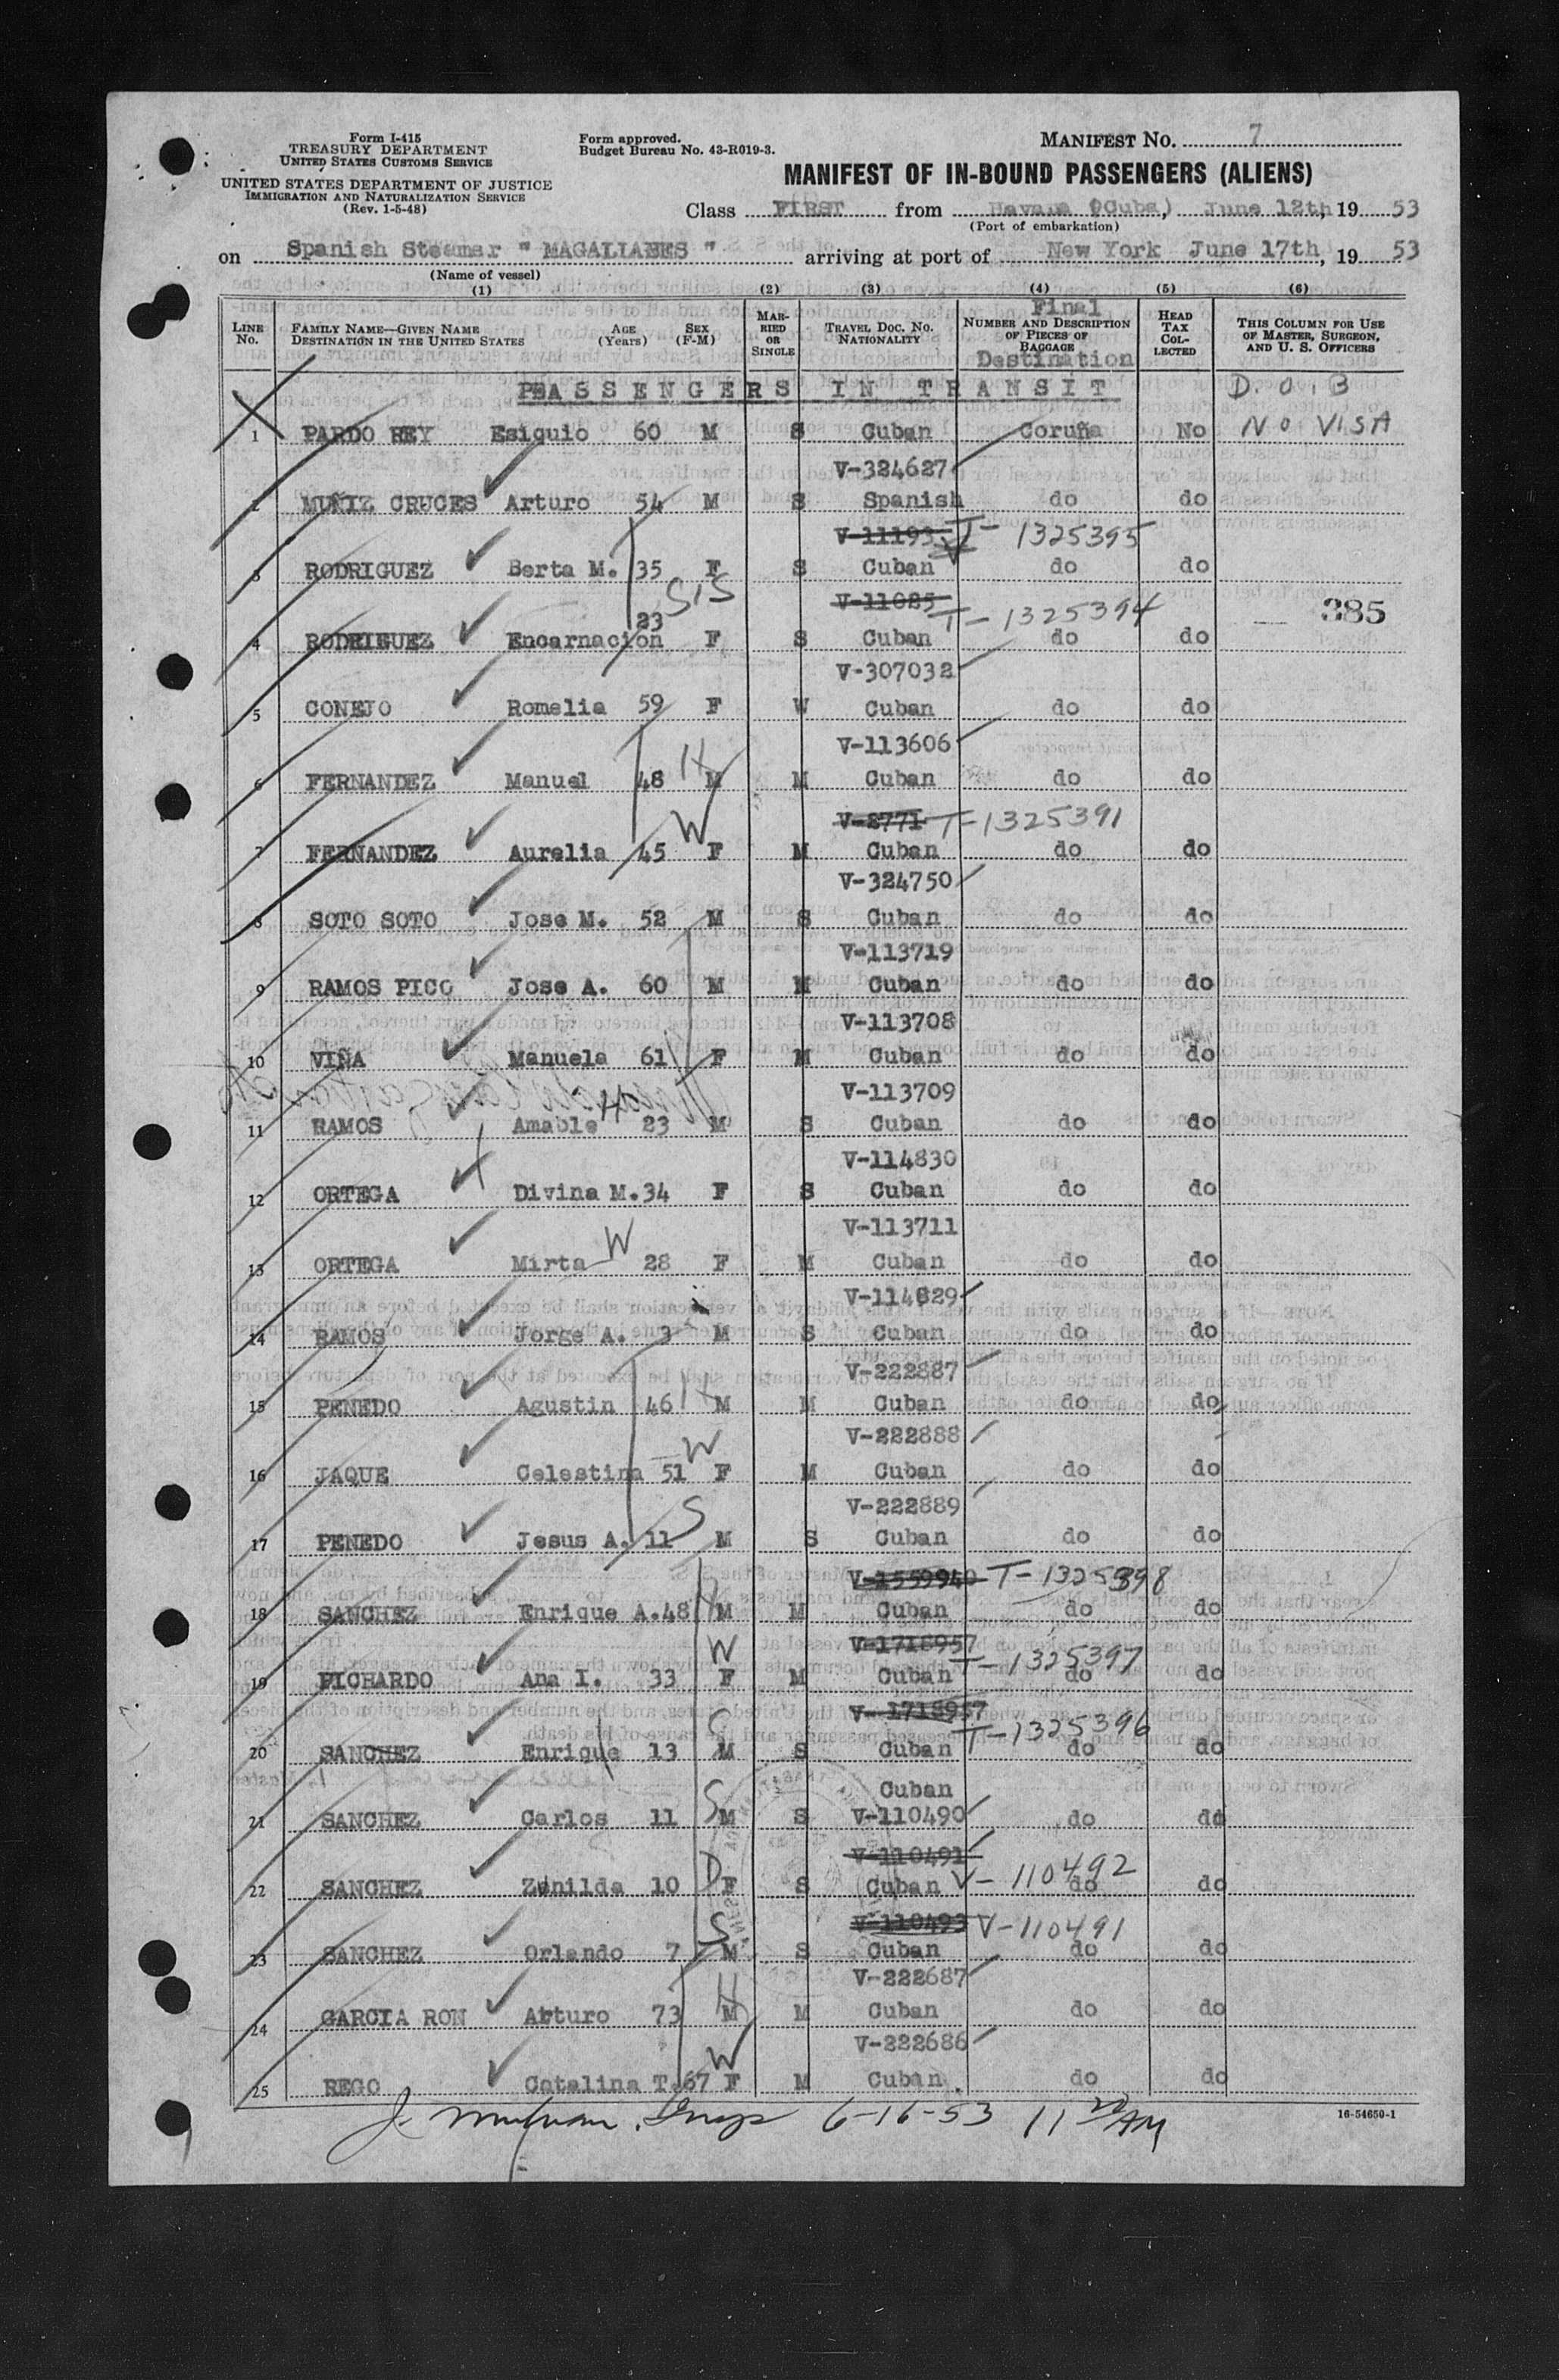 Form I-415
TREASURY DEPARTMENT
UNITED STATES CUSTOMS SERVICE
UNITED STATES DEPARTMENT OF JUSTICE
IMMIGRATION AND NATURALIZATION SERVICE
(Rev. 1-5-48)
Form approved.
Budget Bureau No. 43-R019-3.
MANIFEST No. 7
MANIFEST OF IN-BOUND PASSENGERS (ALIENS)
Class FIRST from Havana (Cuba) June 12th, 19 53
(Port of embarkation)
on Spanish Steamer " MAGALLANES " arriving at port of New York June 17th, 19 53
(Name of vessel)
(1) (2) (3) (4) (5) (6)
LINE No. FAMILY NAME—GIVEN NAME DESTINATION IN THE UNITED STATES AGE (Years) SEX (F-M) MARRIED OR SINGLE TRAVEL DOC. NO. NATIONALITY Final NUMBER AND DESCRIPTION OF PIECES OF BAGGAGE Destination HEAD TAX COLLECTED THIS COLUMN FOR USE OF MASTER, SURGEON, AND U. S. OFFICERS
PASSENGERS IN TRANSIT D.O.B
1 PARDO REY Esiquio 60 M S Cuban Coruña No NO VISA
V-324627
2 MUÑIZ CRUCES Arturo 54 M S Spanish do do
V-11193 T-1325395
3 RODRIGUEZ Berta M. 35 F S Cuban do do
SIS
V-11085 T-1325394 385
4 RODRIGUEZ Encarnacion 23 F S Cuban do do
V-307032
5 CONEJO Romelia 59 F W Cuban do do
V-113606
6 FERNANDEZ Manuel 48 H M M Cuban do do
V-8771 T-1325391
7 FERNANDEZ Aurelia 45 W F M Cuban do do
V-324750
8 SOTO SOTO Jose M. 52 M S Cuban do do
V-113719
9 RAMOS PICO Jose A. 60 M M Cuban do do
V-113708
10 VIÑA Manuela 61 F M Cuban do do
V-113709
11 RAMOS Amable H 23 M S Cuban do do
V-114830
12 ORTEGA Divina M. 34 F S Cuban do do
V-113711
13 ORTEGA Mirta W 28 F M Cuban do do
V-114829
14 RAMOS Jorge A. 3 M S Cuban do do
V-222887
15 PENEDO Agustin 46 H M M Cuban do do
V-222888
16 JAQUE Celestina 51 W F M Cuban do do
V-222889
17 PENEDO Jesus A. 11 S M S Cuban do do
V-1559940 T-1325398
18 SANCHEZ Enrique A. 48 H M M Cuban do do
V-1718957 T-1325397
19 PICHARDO Ana I. 33 W F M Cuban do do
V-1718957 T-1325396
20 SANCHEZ Enrique 13 S M S Cuban do do
Cuban
21 SANCHEZ Carlos 11 S M S V-110490 do do
V-110491 V-110492
22 SANCHEZ Zenilda 10 D F S Cuban do do
V-110493 V-110491
23 SANCHEZ Orlando 7 S M S Cuban do do
V-222687
24 GARCIA RON Arturo 73 H M M Cuban do do
V-222686
25 REGO Catalina T. 67 W F M Cuban do do
6-16-53 11 20 AM
16-54650-1